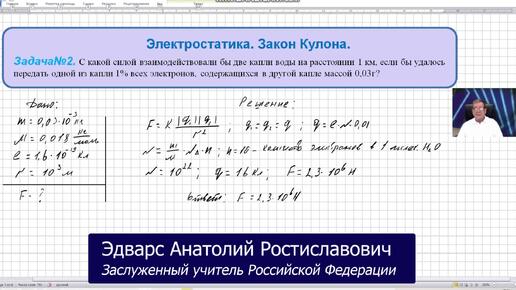 Электростатика. Закон Кулона.
Задача№2. С какой силой взаимодействовали бы две капли воды на расстоянии 1 км, если бы удалось
передать одной из капли 1% всех электронов, содержащихся в другой капле массой 0,03г?
Дано:
Решение:
m = 0,03·10⁻³ кг
M = 0,018 кг/моль
e = 1,6·10⁻¹⁹ Кл
r = 10³ м
F - ?
F = K |q₁||q₂| / r² ; q₁ = q₂ = q ; q = e·N·0,01
N = m/M · Nₐ·n ; n = 10 - количество электронов в 1 молек. H₂O
N = 10²² ; q = 16 Кл ; F = 2,3·10⁶ Н
Ответ: F = 2,3·10⁶ Н
Эдварс Анатолий Ростиславович
Заслуженный учитель Российской Федерации